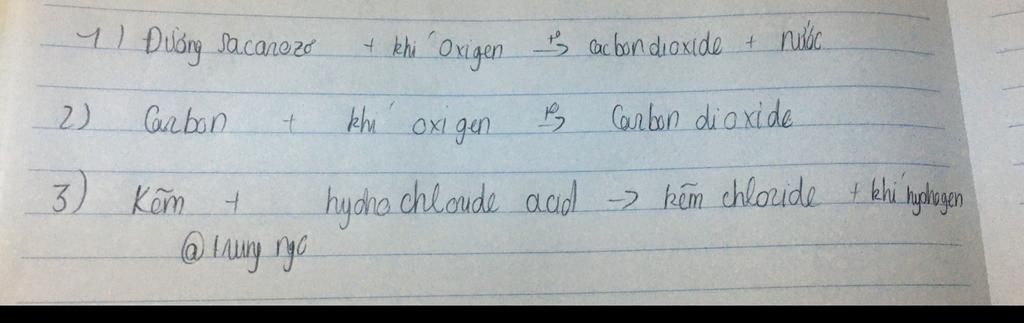 1) Đường Sacarozơ + khí oxigen t°→ cacbondioxide + nước
2) Carbon + khí oxigen t°→ Carbon dioxide
3) Kẽm + hydro chloride acid → kẽm chloride + khí hydrogen
@trung ngo